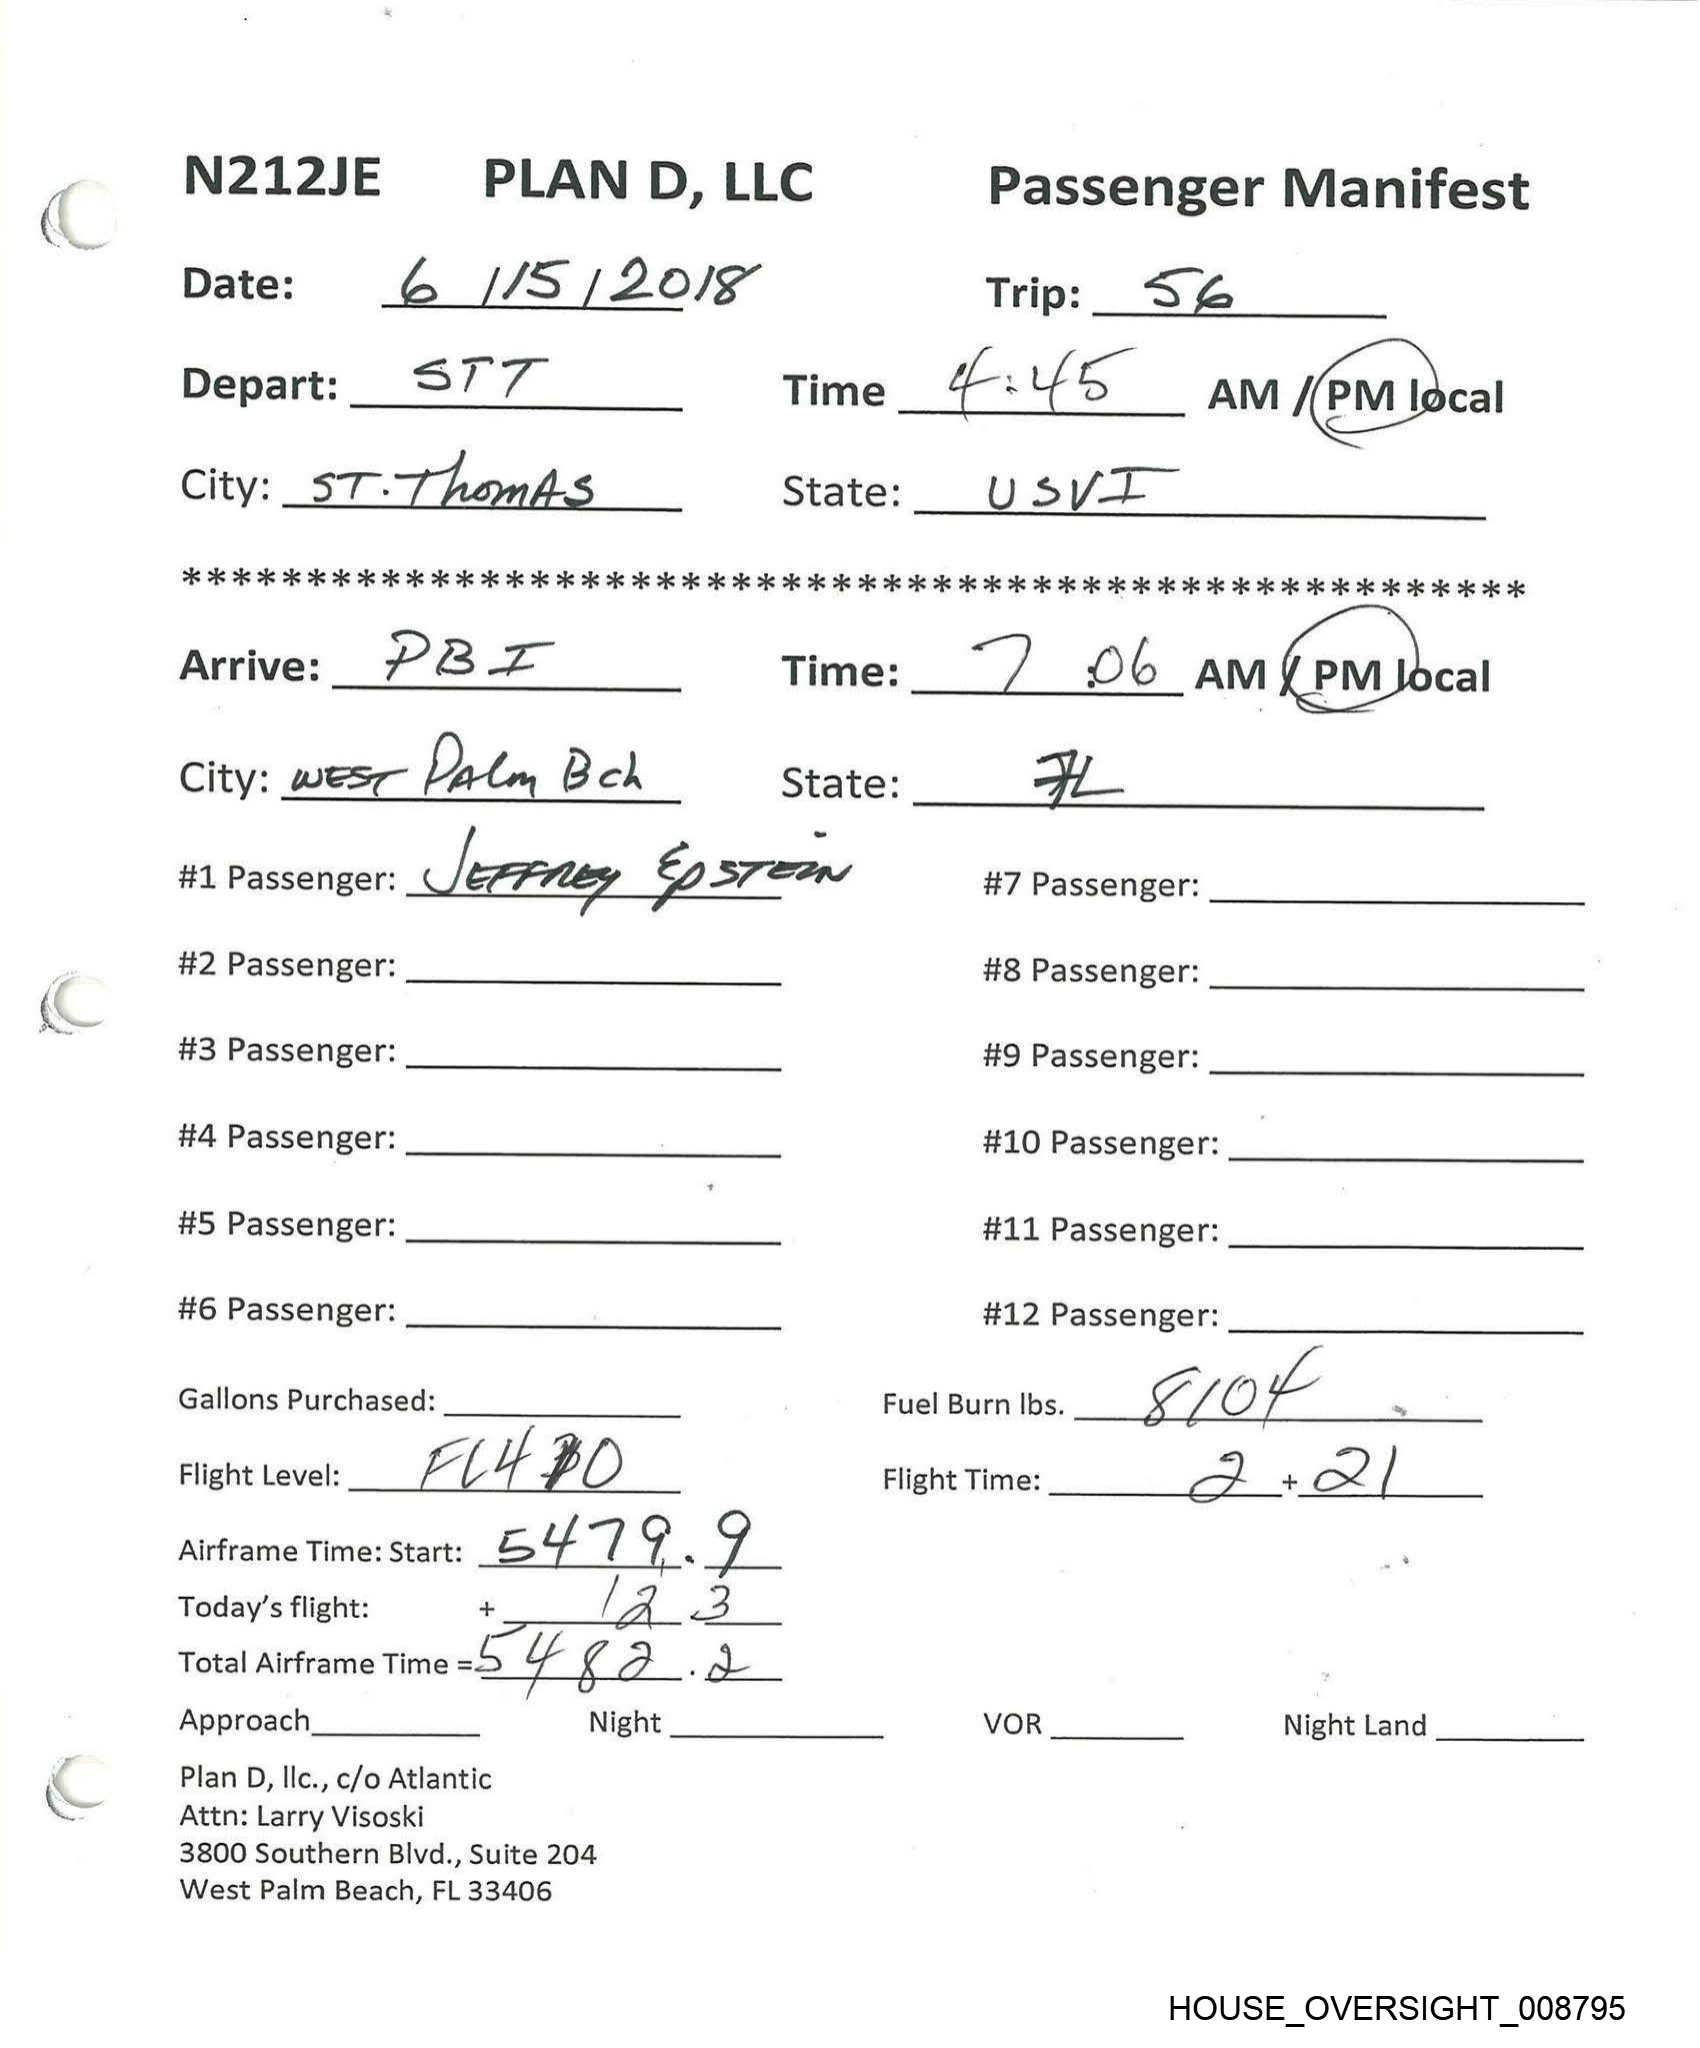 N212JE PLAN D, LLC Passenger Manifest
Date: 6 / 15 / 2018 Trip: 56
Depart: STT Time 4:45 AM / PM local
City: ST. Thomas State: USVI
******************************************************
Arrive: PBI Time: 7 :06 AM / PM local
City: WEST Palm Bch State: FL
#1 Passenger: JEFFREY EPSTEIN #7 Passenger:
#2 Passenger: #8 Passenger:
#3 Passenger: #9 Passenger:
#4 Passenger: #10 Passenger:
#5 Passenger: #11 Passenger:
#6 Passenger: #12 Passenger:
Gallons Purchased: Fuel Burn lbs. 8104
Flight Level: Flight Time: 2 + 21
Airframe Time: Start: 5479.9
Today's flight: +
Total Airframe Time = 5482.2
Approach Night VOR Night Land
Plan D, llc., c/o Atlantic
Attn: Larry Visoski
3800 Southern Blvd., Suite 204
West Palm Beach, FL 33406
HOUSE_OVERSIGHT_008795